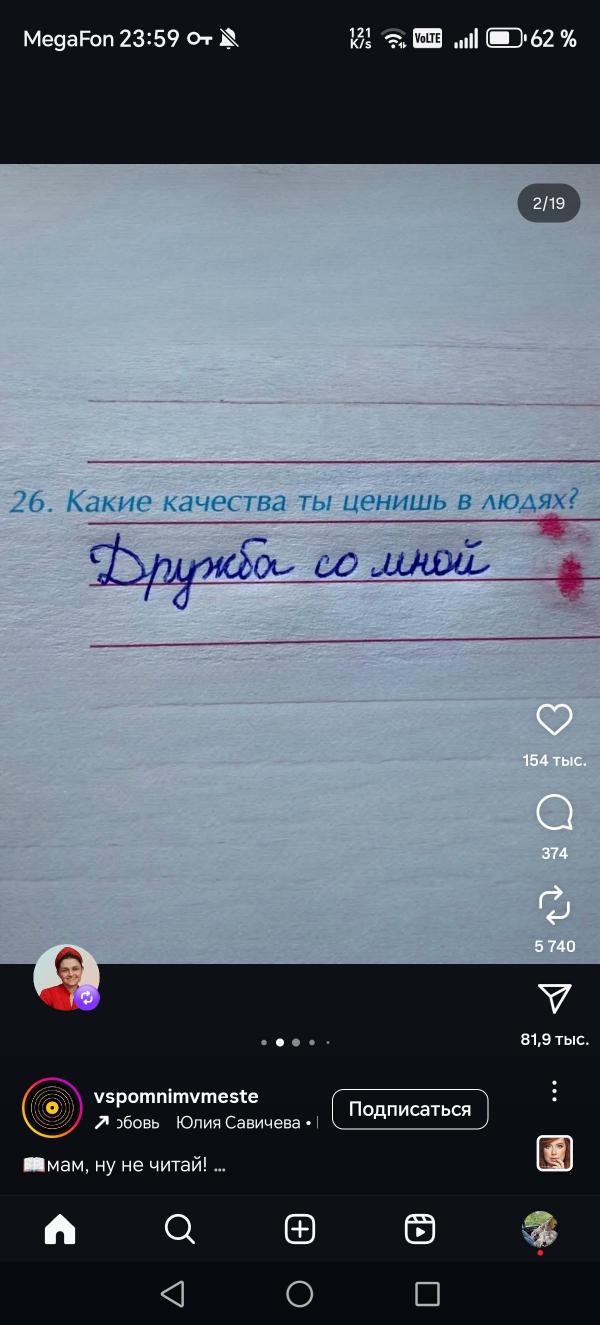 MegaFon 23:59 121 K/s VoLTE 62 %
2/19
26. Какие качества ты ценишь в людях?
Дружба со мной
154 тыс.
374
5 740
81,9 тыс.
vspomnimvmeste
Подписаться
обовь Юлия Савичева •
📖мам, ну не читай! ...